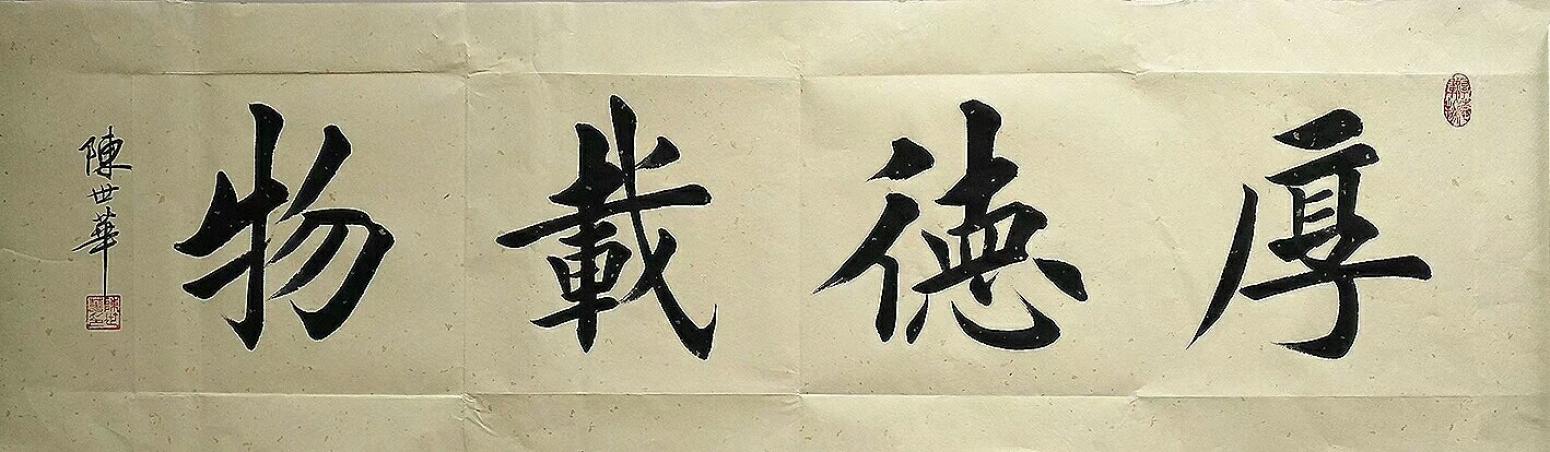 厚德載物
陳世華